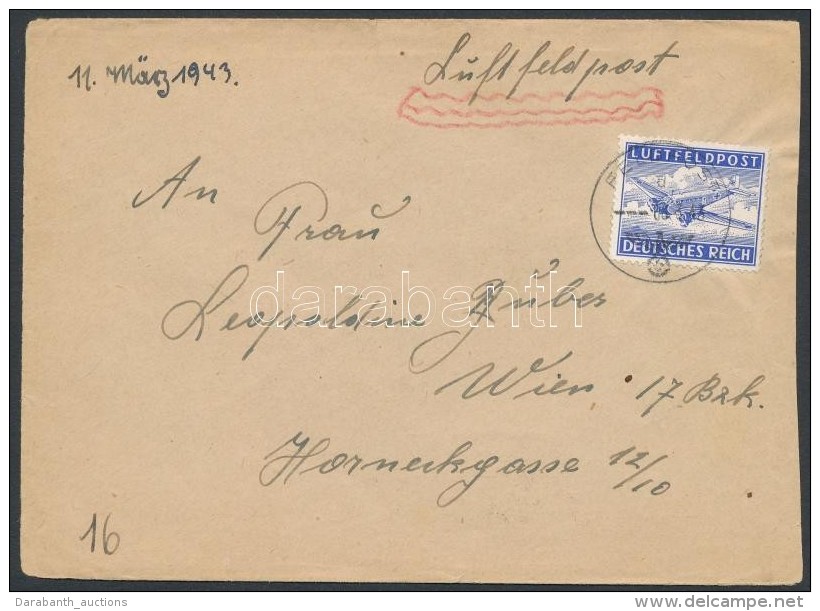 11. März 1943.
Luftfeldpost
LUFTFELDPOST
DEUTSCHES REICH
An
Frau
Leopoldine Huber
Wien, 17 Bzk.
Horneckgasse 12/10
16
darabanth
Darabanth_auctions
www.delcampe.net